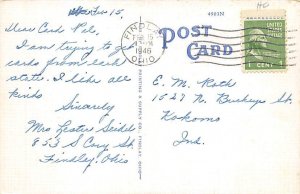 Feb 15,
Dear Card Pal,
I am trying to
cards from each
state. I like all
kinds
Sincerly
Mrs Lester Seidel
853 S Cory St.
Findlay, Ohio
FINDLAY
FEB 15
1946
OHIO
POST
CARD
E. M. Roth
1527 N. Buckeye St.
Kokomo
Ind.
1 CENT 1